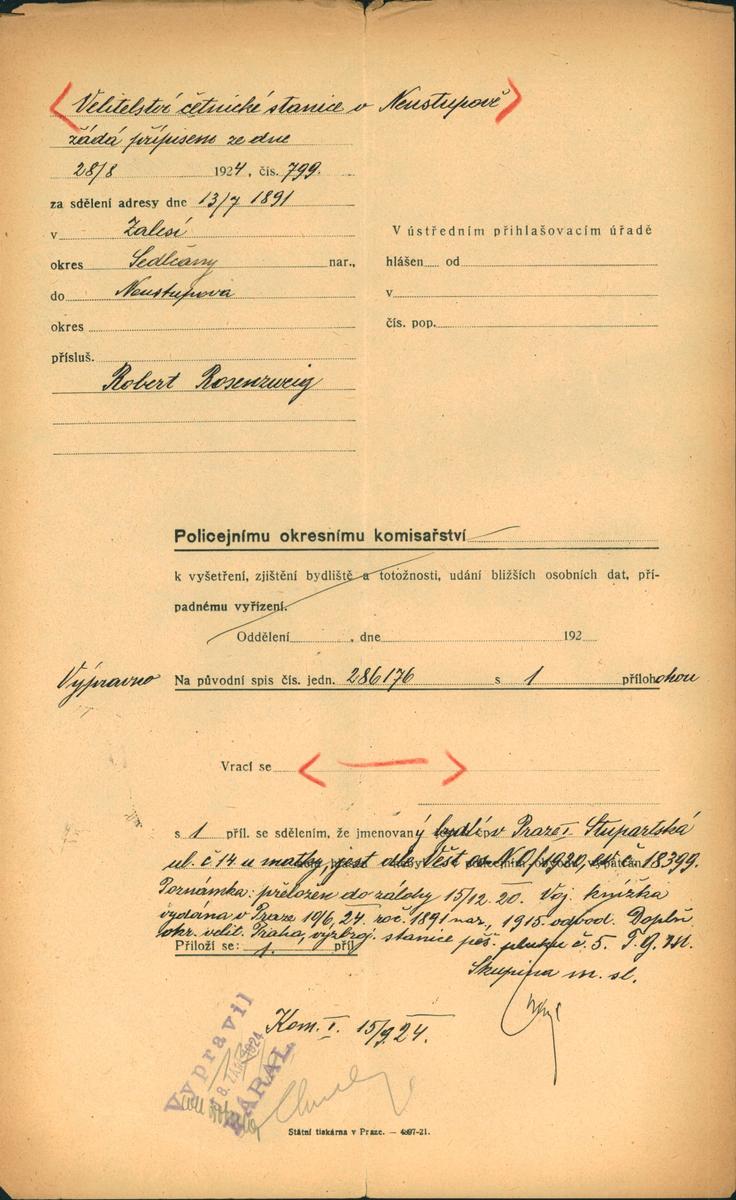 Velitelství četnické stanice v Neustupově
žádá přípisem ze dne
28/8 1924, čís. 799.
za sdělení adresy dne 13/7 1891
v Zalesí
okres Sedlčany nar.,
do Neustupova
okres
přísluš.
Robert Rosenzweig
V ústředním přihlašovacím úřadě
hlášen od
v
čís. pop.
Policejnímu okresnímu komisařství
k vyšetření, zjištění bydliště a totožnosti, udání bližších osobních dat, pří-
padnému vyřízení.
Oddělení , dne 192
Výpravno Na původní spis čís. jedn. 286176 s 1 přílohohou
Vrací se
s 1 příl. se sdělením, že jmenovaný bydlí v Praze I Stupartská
ul. č 14 u matky, jest dle Věst N 6/1920, č 18399.
Poznámka: přeložen do zálohy 15/12. 20. Voj. knížka
vydána v Praze 10/6. 24. roč. 1891 nar., 1915. odvod. Doplň
okr. velit. Praha, výzbroj. stanice pěš. pluku č. 5. T. G. M.
Přiloží se: 1. příl
Skupina m. sl.
Kom. I. 15/9 24.
Vypravil
18. ZÁŘÍ 1924
KÁRAL
Státní tiskárna v Praze. — 4897-21.